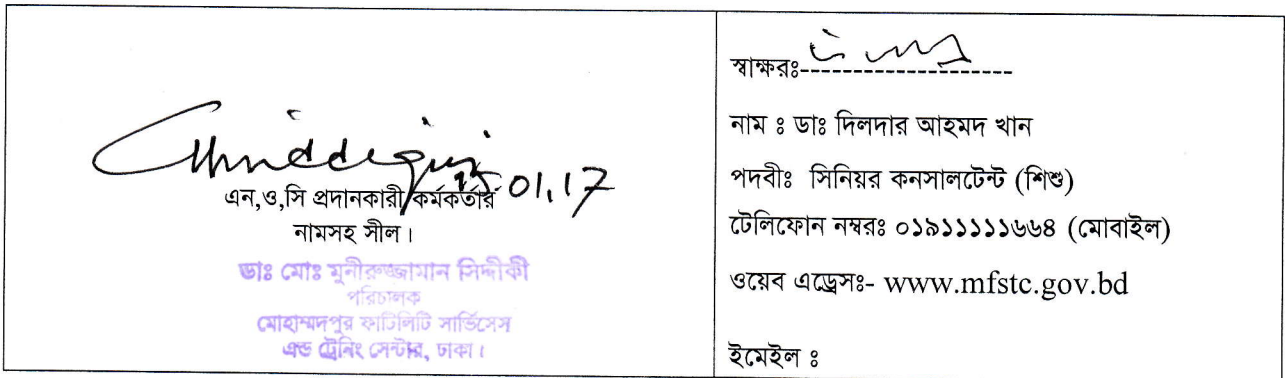 15.01.17
এন,ও,সি প্রদানকারী কর্মকর্তার
নামসহ সীল।
ডাঃ মোঃ মুনীরুজ্জামান সিদ্দীকী
পরিচালক
মোহাম্মদপুর ফার্টিলিটি সার্ভিসেস
এন্ড ট্রেনিং সেন্টার, ঢাকা।
স্বাক্ষরঃ--------------------
নাম ঃ ডাঃ দিলদার আহমদ খান
পদবীঃ সিনিয়র কনসালটেন্ট (শিশু)
টেলিফোন নম্বরঃ ০১৯১১১১১৬৬৪ (মোবাইল)
ওয়েব এড্রেসঃ- www.mfstc.gov.bd
ইমেইল ঃ